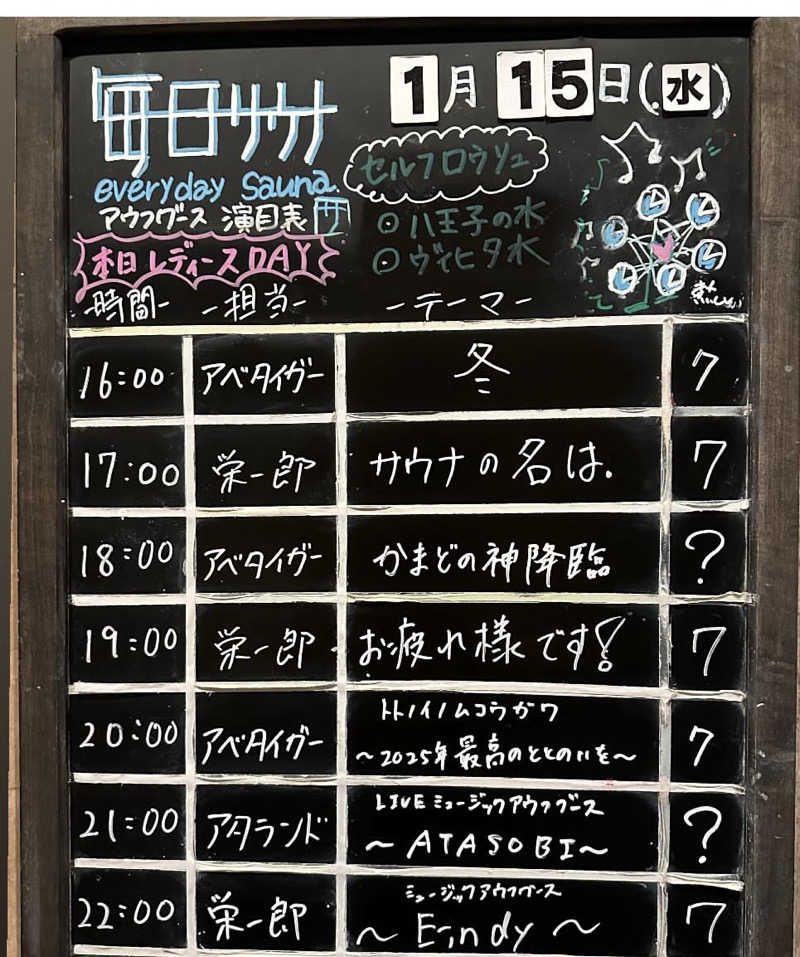 毎日サウナ
everyday Sauna.
アウフグース 演目表 サ
本日レディースDAY
1月15日(水)
セルフロウリュ
◎八王子の水
◎ヴィヒタ水
-時間- -担当- -テーマ-
16:00 アベタイガー 冬 7
17:00 栄一郎 サウナの名は. 7
18:00 アベタイガー かまどの神降臨 ?
19:00 栄一郎 お疲れ様です! 7
20:00 アベタイガー トトノイノムコウガワ 7
〜2025年最高のととのいを〜
21:00 アタランド LIVEミュージックアウフグース ?
〜ATASOBI〜
22:00 栄一郎 ミュージックアウフグース 7
〜Eindy〜